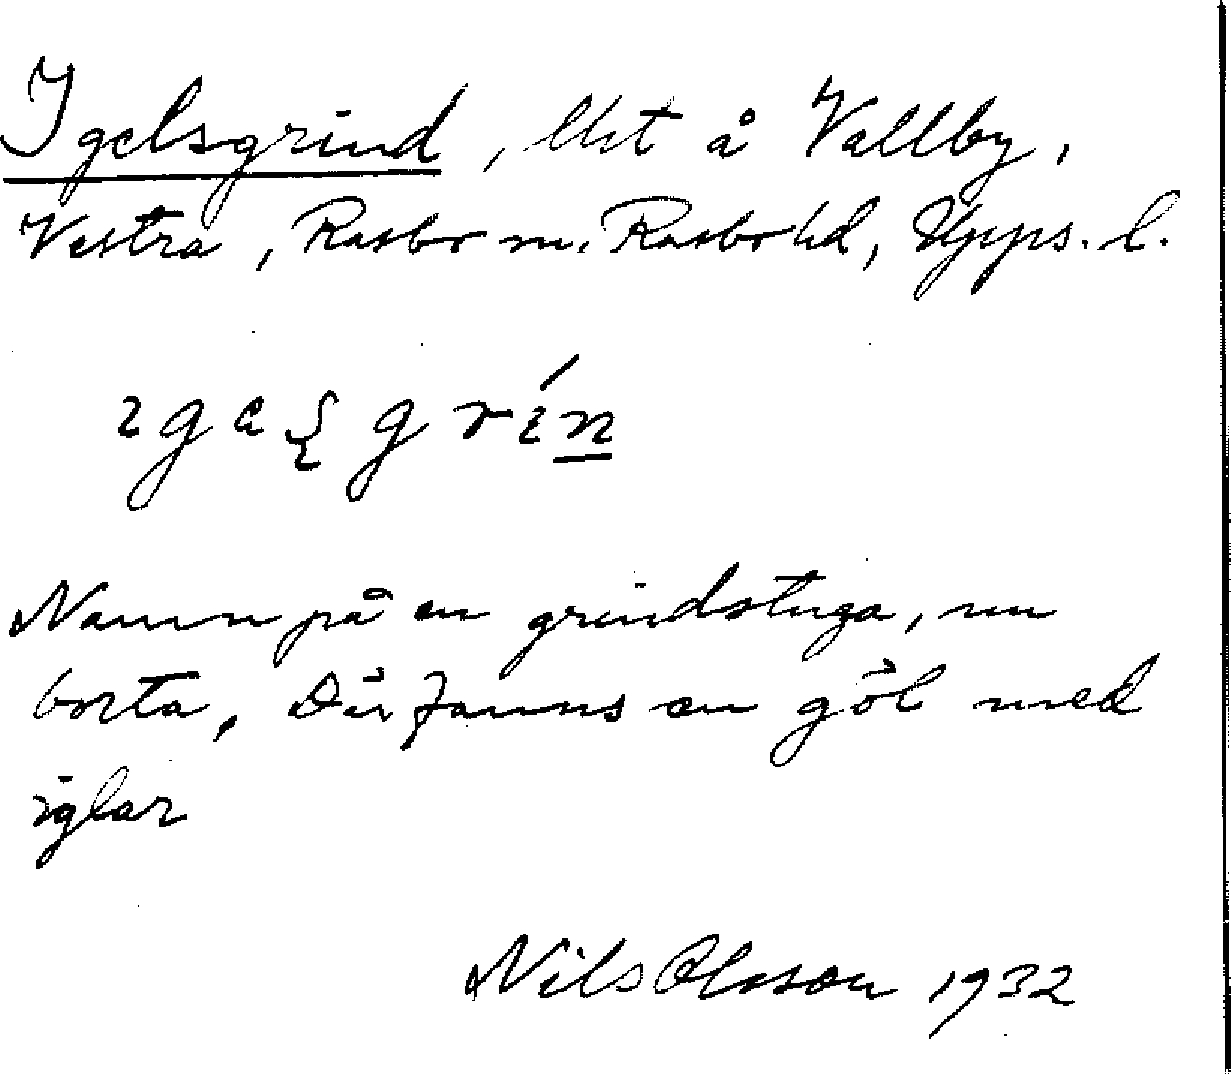 Igelsgrind, lht å Vallby,
Vestra, Rasbo sn. Rasbo hd, Upps. l.
ɩgeʂgrɩ́n
Namn på en grindstuga, nu
borta. Där fanns en göl med
iglar
Nils Olsson 1932